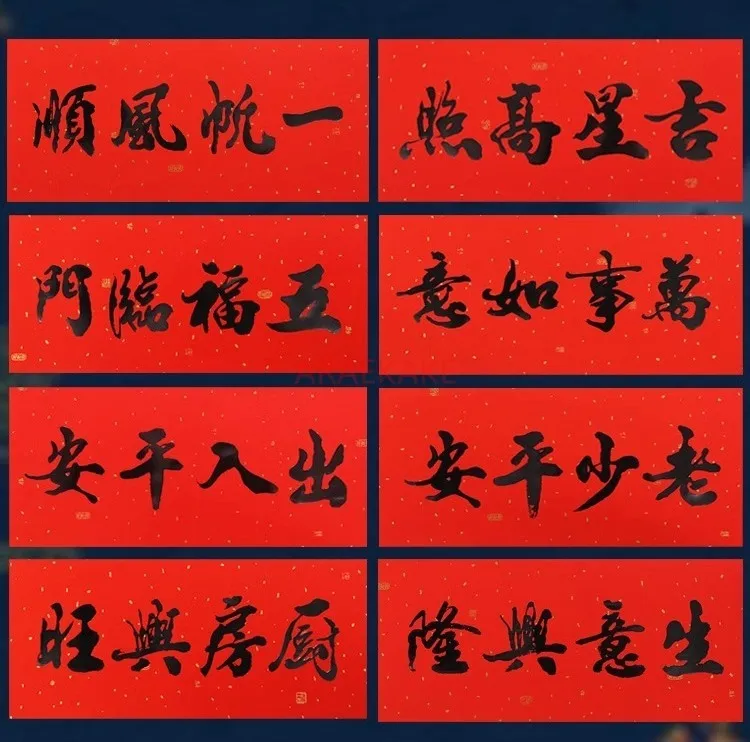 一帆風順
吉星高照
五福臨門
萬事如意
出入平安
老少平安
厨房興旺
生意興隆